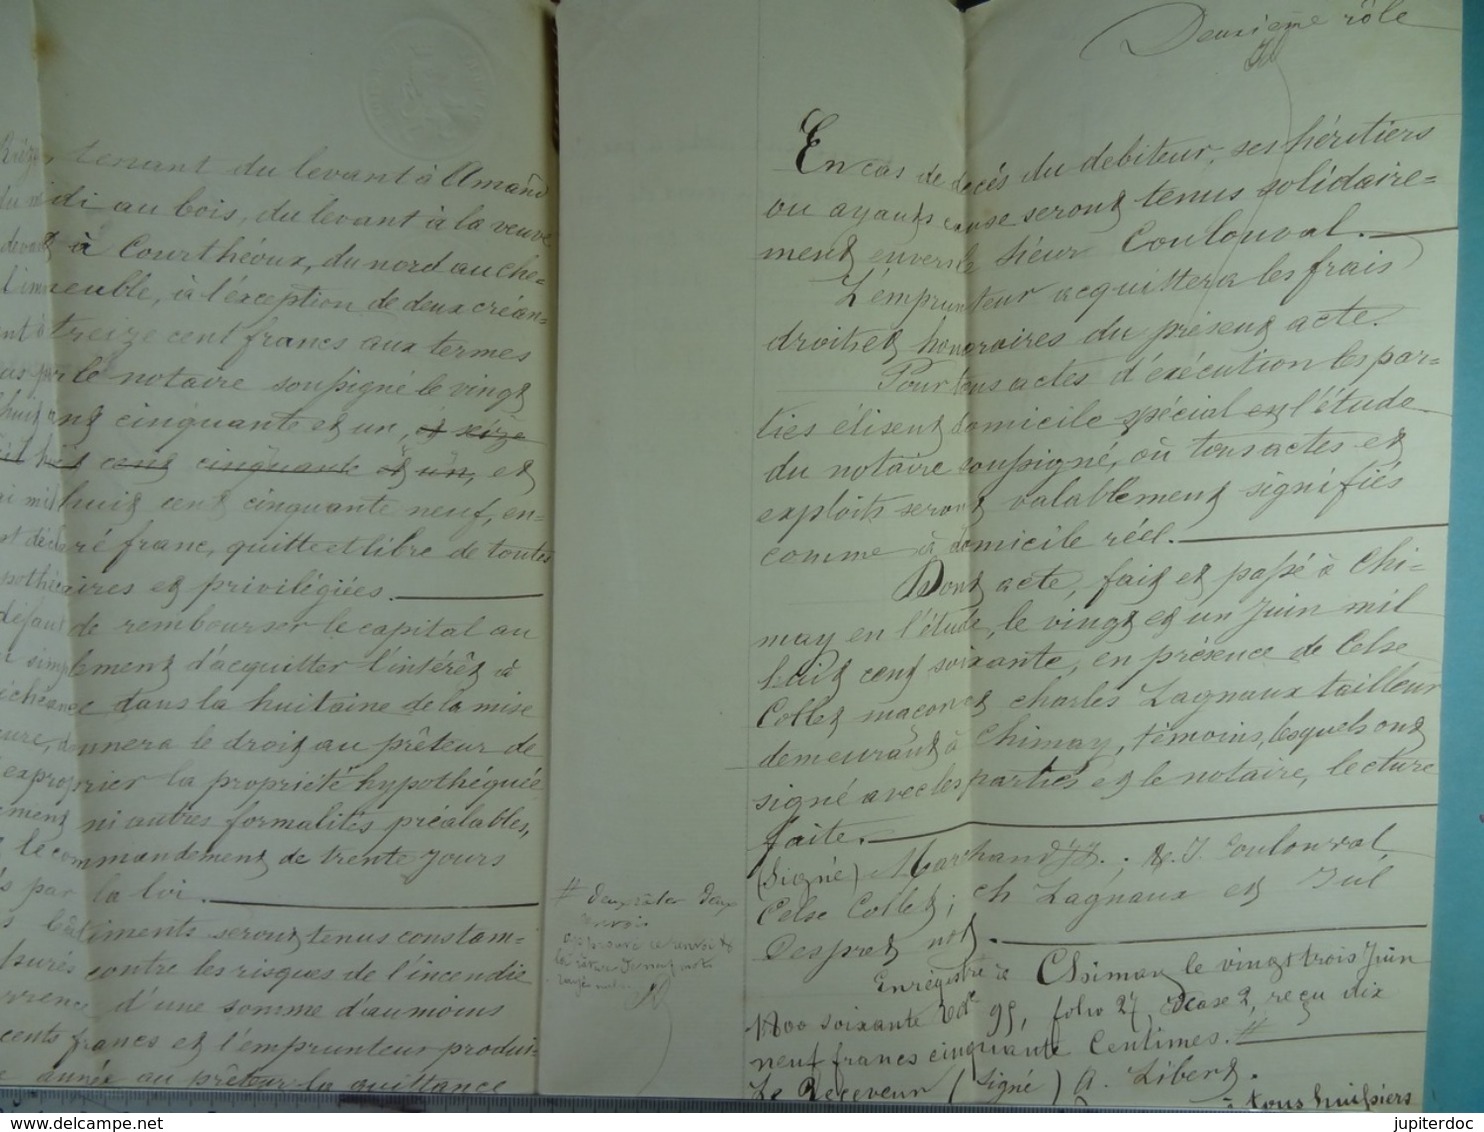 tenant du levant à Amand
di au bois, du levant à la veuve
à Courthéoux, du nord au che=
meuble, à l'éxception de deux créan=
treize cent francs aux termes
le notaire soussigné le vingt
cinquante et un, et seize
cent cinquante et un, et
mil huit cent cinquante neuf, en=
déclaré franc, quitte et libre de toutes
hypothécaires et privilégiées.
défaut de rembourser le capital au
simplement d'acquitter l'intérêt à
échéance dans la huitaine de la mise
donnera le droit au prêteur de
exproprier la propriété hypothéquée
ni autres formalités préalables,
le commandement de trente jours
par la loi.
bâtiments seront tenus constam=
contre les risques de l'incendie
d'une somme d'au moins
cents francs et l'emprunteur produi=
année au prêteur la quittance
Deuxième rôle
En cas de decés du debiteur, ses héritiers
ou ayants cause seront tenus solidaire=
ment envers le sieur Coulonval.
L'emprunteur acquittera les frais
droits et honoraires du présent acte.
Pour tous actes d'éxécution les par=
ties élisent domicile spécial en l'étude
du notaire soussigné, où tous actes et
exploits seront valablement signifiés
comme à domicile réel.
Dont acte, fait et passé à Chi=
may en l'étude, le vingt et un Juin mil
huit cent soixante, en présence de Celse
Collet maçon et charles Lagnaux tailleur
demeurant à Chimay, témoins, lesquels ont
signé avec les parties et le notaire, lecture
faite.
(Signé) Marchand JJ.; & J. Coulonval
Celse Collet; ch Lagnaux et Jul
Despret not.
Enregistré à Chimay le vingt trois Juin
1800 soixante vol 99, folio 27, case 2, reçu dix
neuf francs cinquante Centimes. #
Le Receveur (signé) A. Libert.
à tous huissiers
# deux rôles deux
renvois
approuvé le renvoi &